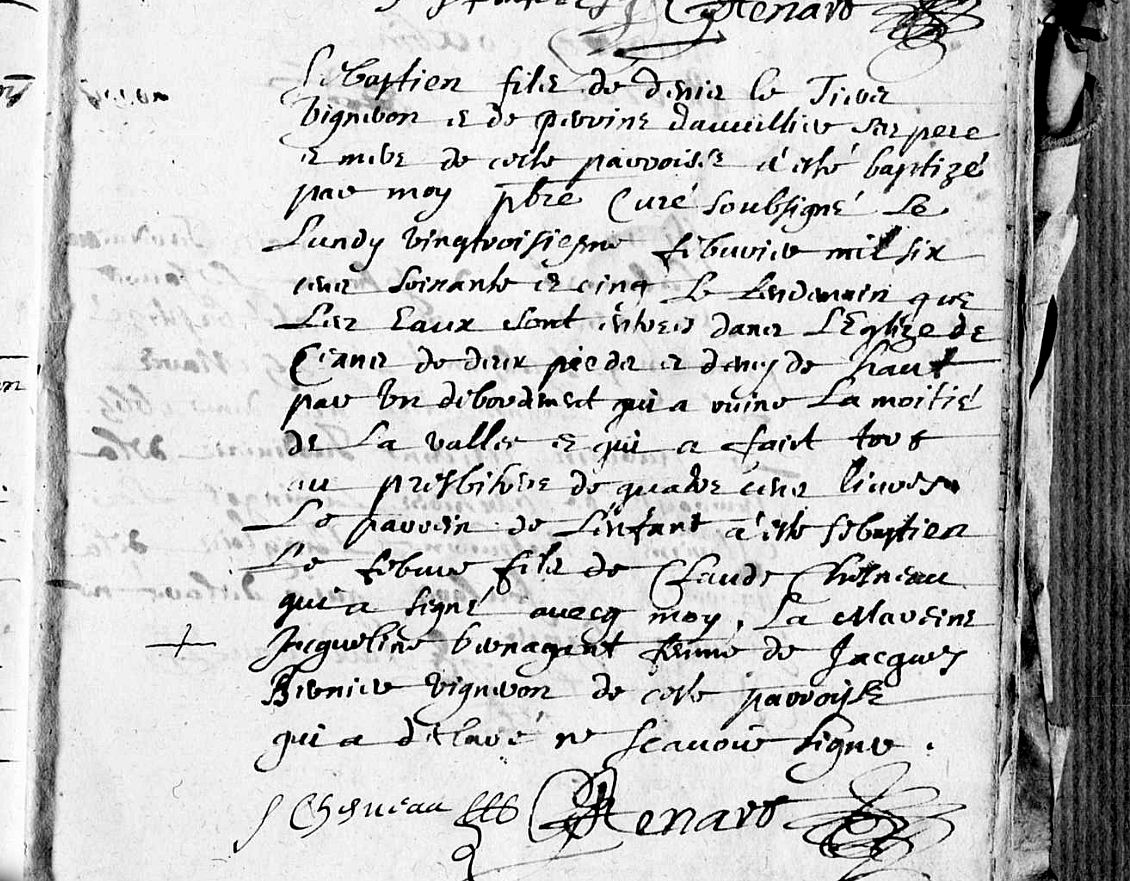 Renard
Sebastien filz de denis le Tiers
vigneron et de perrine dauvilliers ses pere
et mere de ceste parroisse a esté baptizé
par moy pbre Curé soubsigné Le
Lundy vingtroisiesme febvrier mil six
cens soixante et cinq Le Lendemain que
Les Eaux sont entrees dans L'Eglize de
Ceans de deux pieds et demy de haut
par un debordement qui a ruiné La moitié
de La vallee et qui a faict tort
au presbitere de quatre cens livres
Le parrein de L'enfant a esté sebastien
Le febvre filz de Claude Chesneau
qui a signé avecq moy, La Mareine
Jacqueline femme de Jacques
Bernier vigneron de ceste parroisse
qui a declaré ne scavoir signer.
S Chesneau Renard